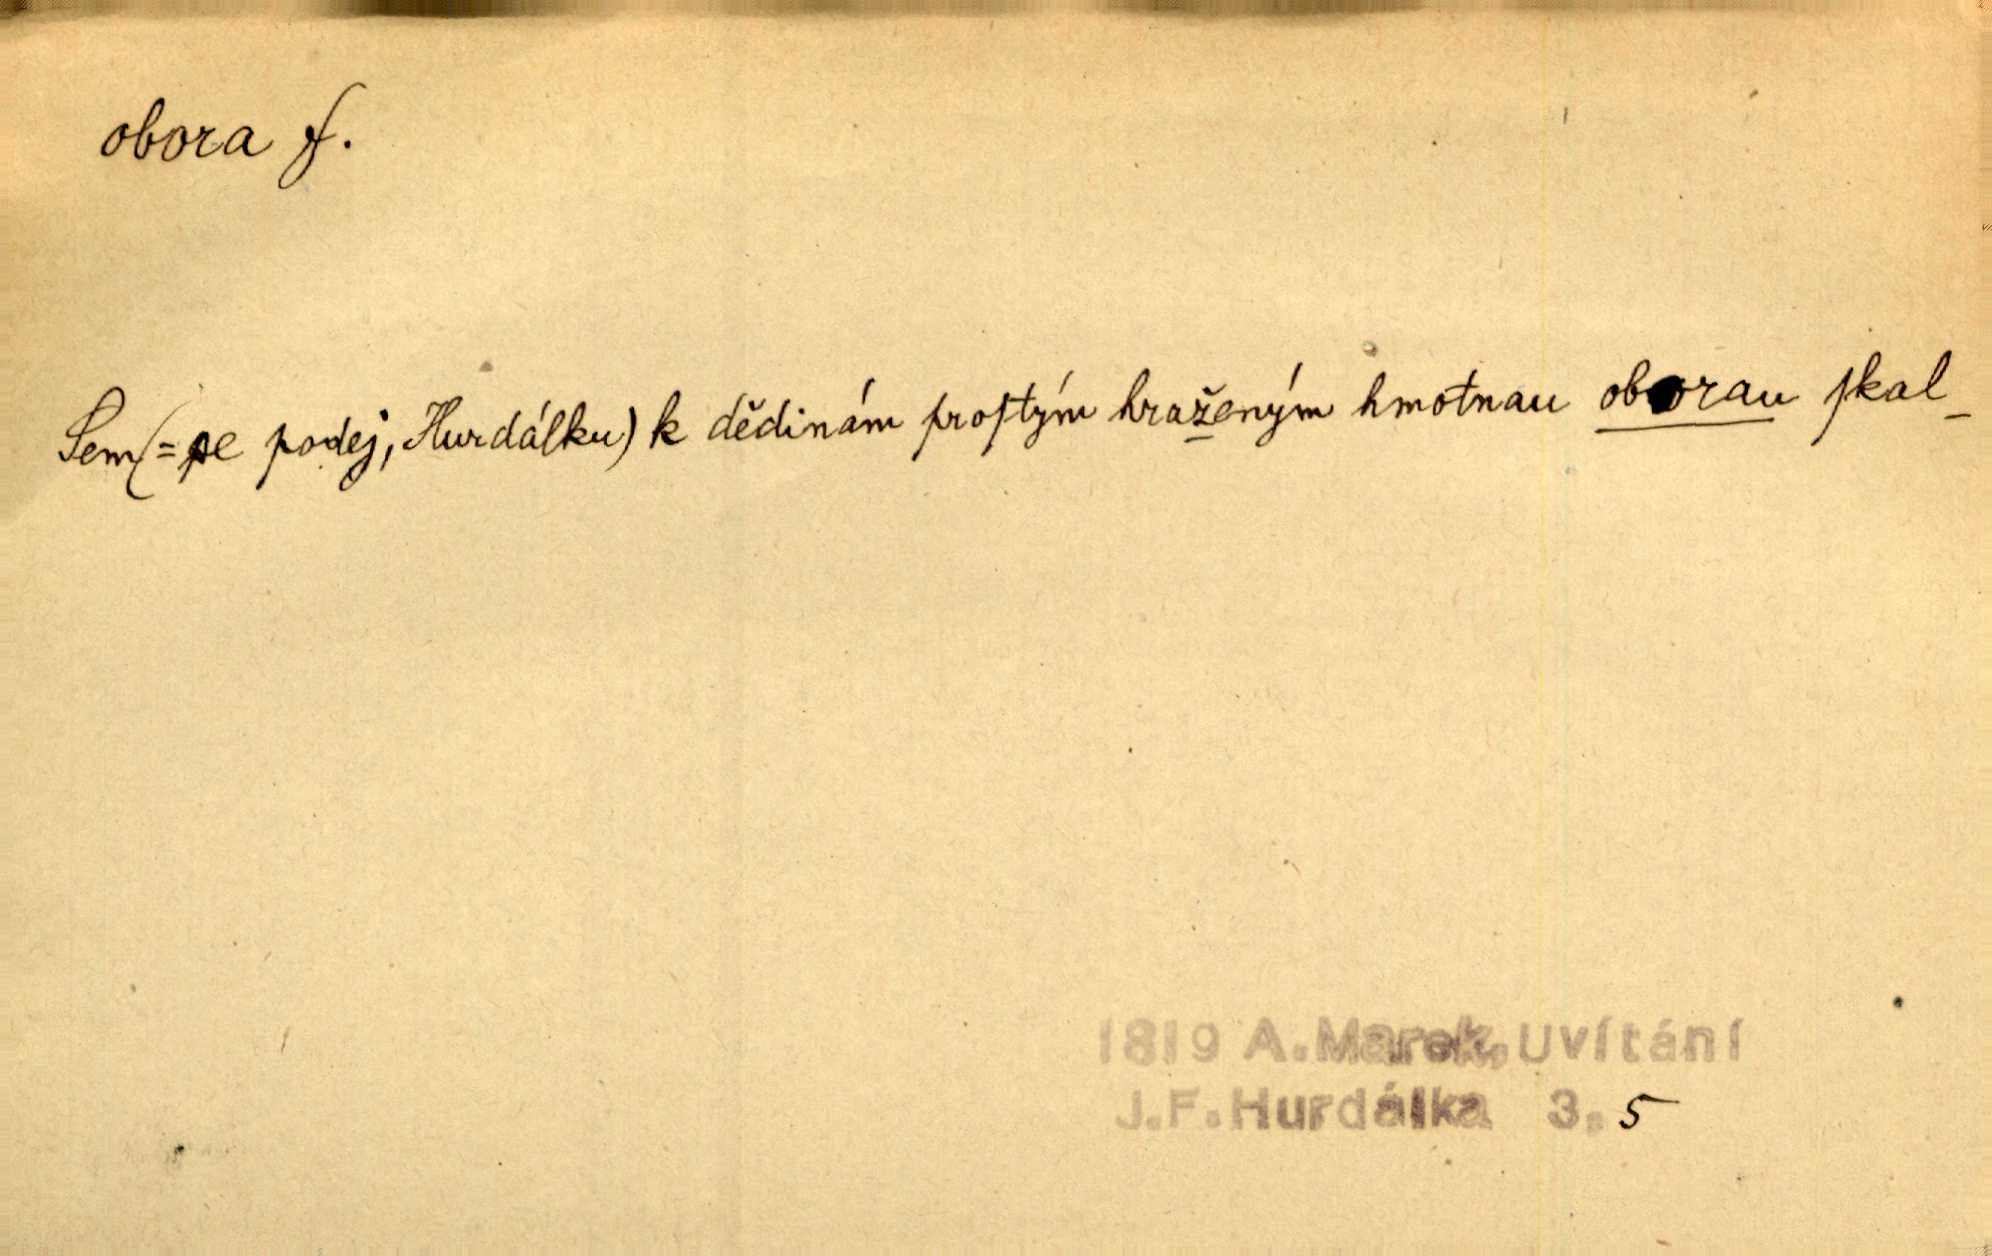 obora f.
Sem (= se podej, Hurdálku) k dědinám proſtým hraženým hmotnau oborau ſkal_
1819 A. Marek, Uvítání
J.F. Hurdálka 3, 5